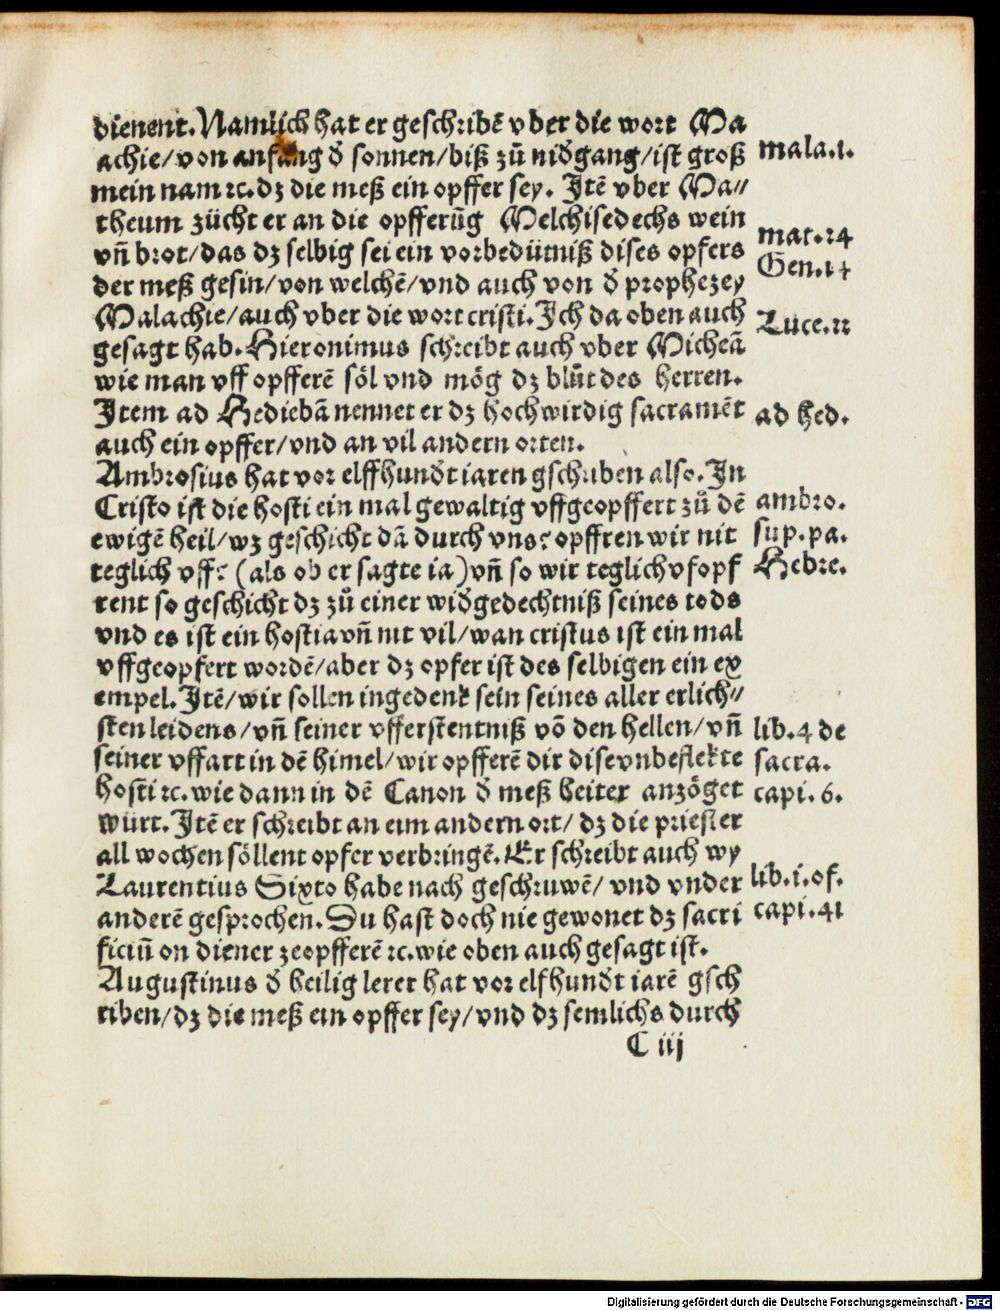 dienent. Namlich hat er geschribē vber die wort Ma
achie/von anfang ð sonnen/biß zů niðgang/ist groß
mala.1.
mein nam ꝛc. dz die meß ein opffer sey. Itē vber Ma⸗
theum zücht er an die opfferūg Melchisedechs wein
vñ brot/das dz selbig sei ein vorbedütniß dises opfers
mat.24
Gen.14
der meß gesin/von welchē/vnd auch von ð prophezey
Malachie/auch vber die wort cristi. Ich da oben auch
Luce.22
gesagt hab. Hieronimus schreibt auch vber Micheā
wie man vff opfferē söl vnd mög dz blůt des herren.
Item ad Hediebā nennet er dz hochwirdig sacramēt
ad hed.
auch ein opffer/vnd an vil andern orten.
Ambrosius hat vor elffhundt iaren gschriben also. In
Cristo ist die hosti ein mal gewaltig vffgeopffert zů dē
ambro.
ewigē heil/wz geschicht dā durch vns? opffren wir nit
sup.pa.
teglich vff? (als ob er sagte ia) vñ so wir teglich vfopf
Hebre.
rent so geschicht dz zů einer wiðgedechtniß seines tods
vnd es ist ein hostia vñ nit vil/wan cristus ist ein mal
vffgeopfert wordē/aber dz opfer ist des selbigen ein ex
empel. Itē/wir sollen ingedenk sein seines aller erlich⸗
sten leidens/vñ seiner vfferstentniß vō den hellen/vñ
lib.4 de
seiner vffart in dē himel/wir opfferē dir dise vnbeflekte
sacra.
hosti ꝛc. wie dann in dē Canon ð meß heiter anzöget
capi.6.
würt. Itē er schreibt an eim andern ort/dz die priester
all wochen söllent opfer verbringē. Er schreibt auch wy
Laurentius Sixto habe nach geschruwē/vnd vnder
lib.i.of.
anderē gesprochen. Du hast doch nie gewonet dz sacri
capi.41
ficiū on diener zeopfferē ꝛc. wie oben auch gesagt ist.
Augustinus ð heilig lerer hat vor elfhundt iarē gsch
riben/dz die meß ein opffer sey/vnd dz semlichs durch
C iij
Digitalisierung gefördert durch die Deutsche Forschungsgemeinschaft - DFG